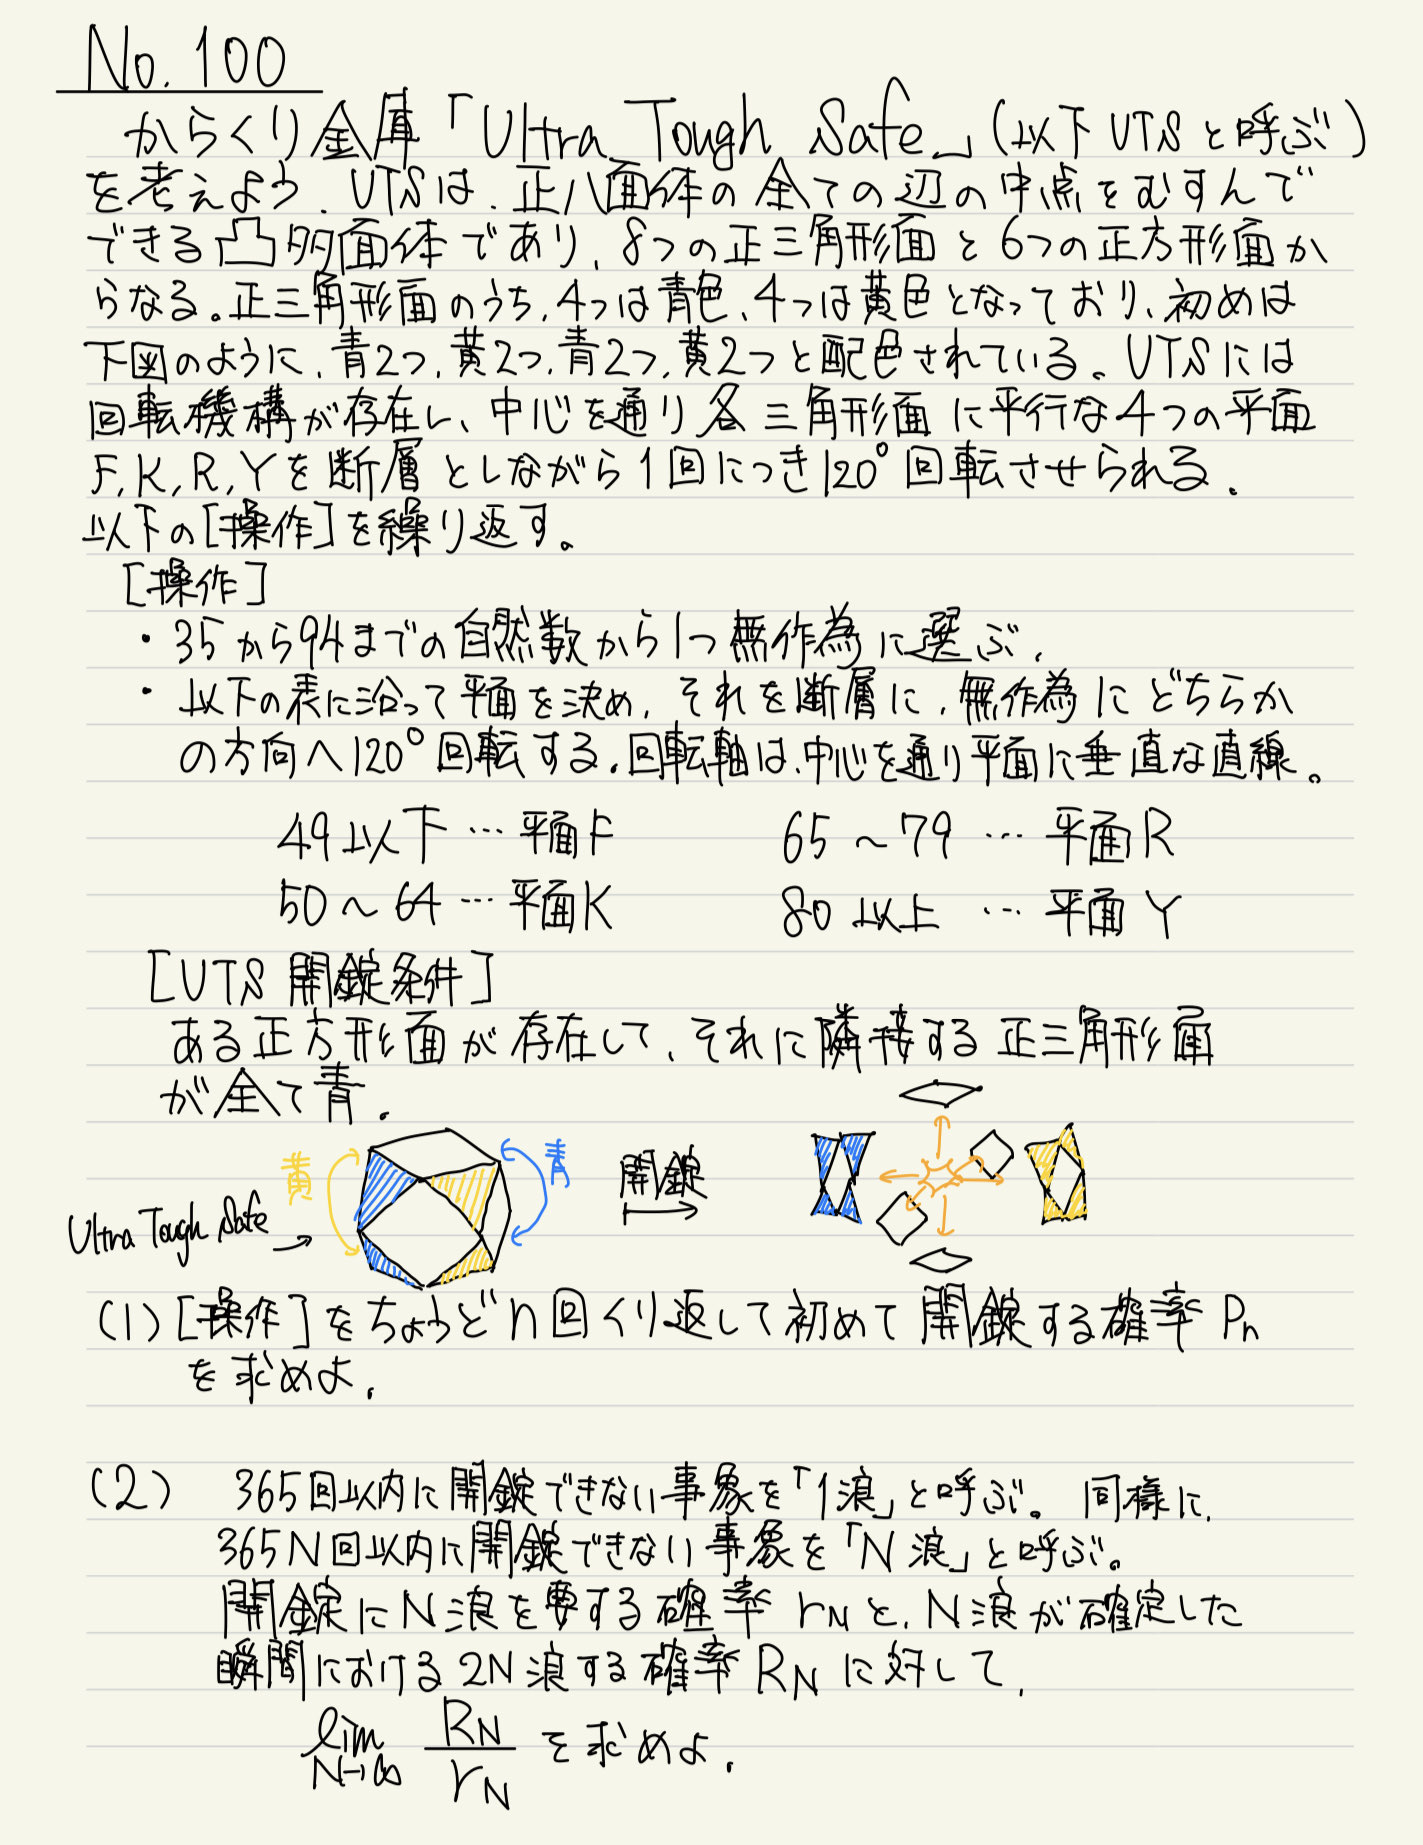 No. 100
からくり金庫「Ultra Tough Safe」(以下 UTS と呼ぶ)
を考えよう. UTSは, 正八面体の全ての辺の中点をむすんで
できる凸多面体であり, 8つの正三角形面と6つの正方形面か
らなる。正三角形面のうち, 4つは青色, 4つは黄色となっており, 初めは
下図のように, 青2つ, 黄2つ, 青2つ, 黄2つと配色されている。UTSには
回転機構が存在し, 中心を通り各三角形面に平行な4つの平面
F, K, R, Yを断層としながら1回につき120°回転させられる.
以下の[操作]を繰り返す。
[操作]
・35から94までの自然数から1つ無作為に選ぶ.
・以下の表に沿って平面を決め, それを断層に, 無作為にどちらか
の方向へ120°回転する. 回転軸は, 中心を通り平面に垂直な直線。
49以下 … 平面F 65〜79 … 平面R
50〜64 … 平面K 80以上 … 平面Y
[UTS 開錠条件]
ある正方形面が存在して, それに隣接する正三角形面
が全て青.
黄 青 開錠
Ultra Tough Safe
(1) [操作]をちょうどn回くり返して初めて開錠する確率 Pn
を求めよ.
(2) 365回以内に開錠できない事象を「1浪」と呼ぶ。同様に,
365N回以内に開錠できない事象を「N浪」と呼ぶ。
開錠にN浪を要する確率 rNと, N浪が確定した
瞬間における2N浪する確率 RNに対して,
lim N→∞ RN/rN を求めよ.